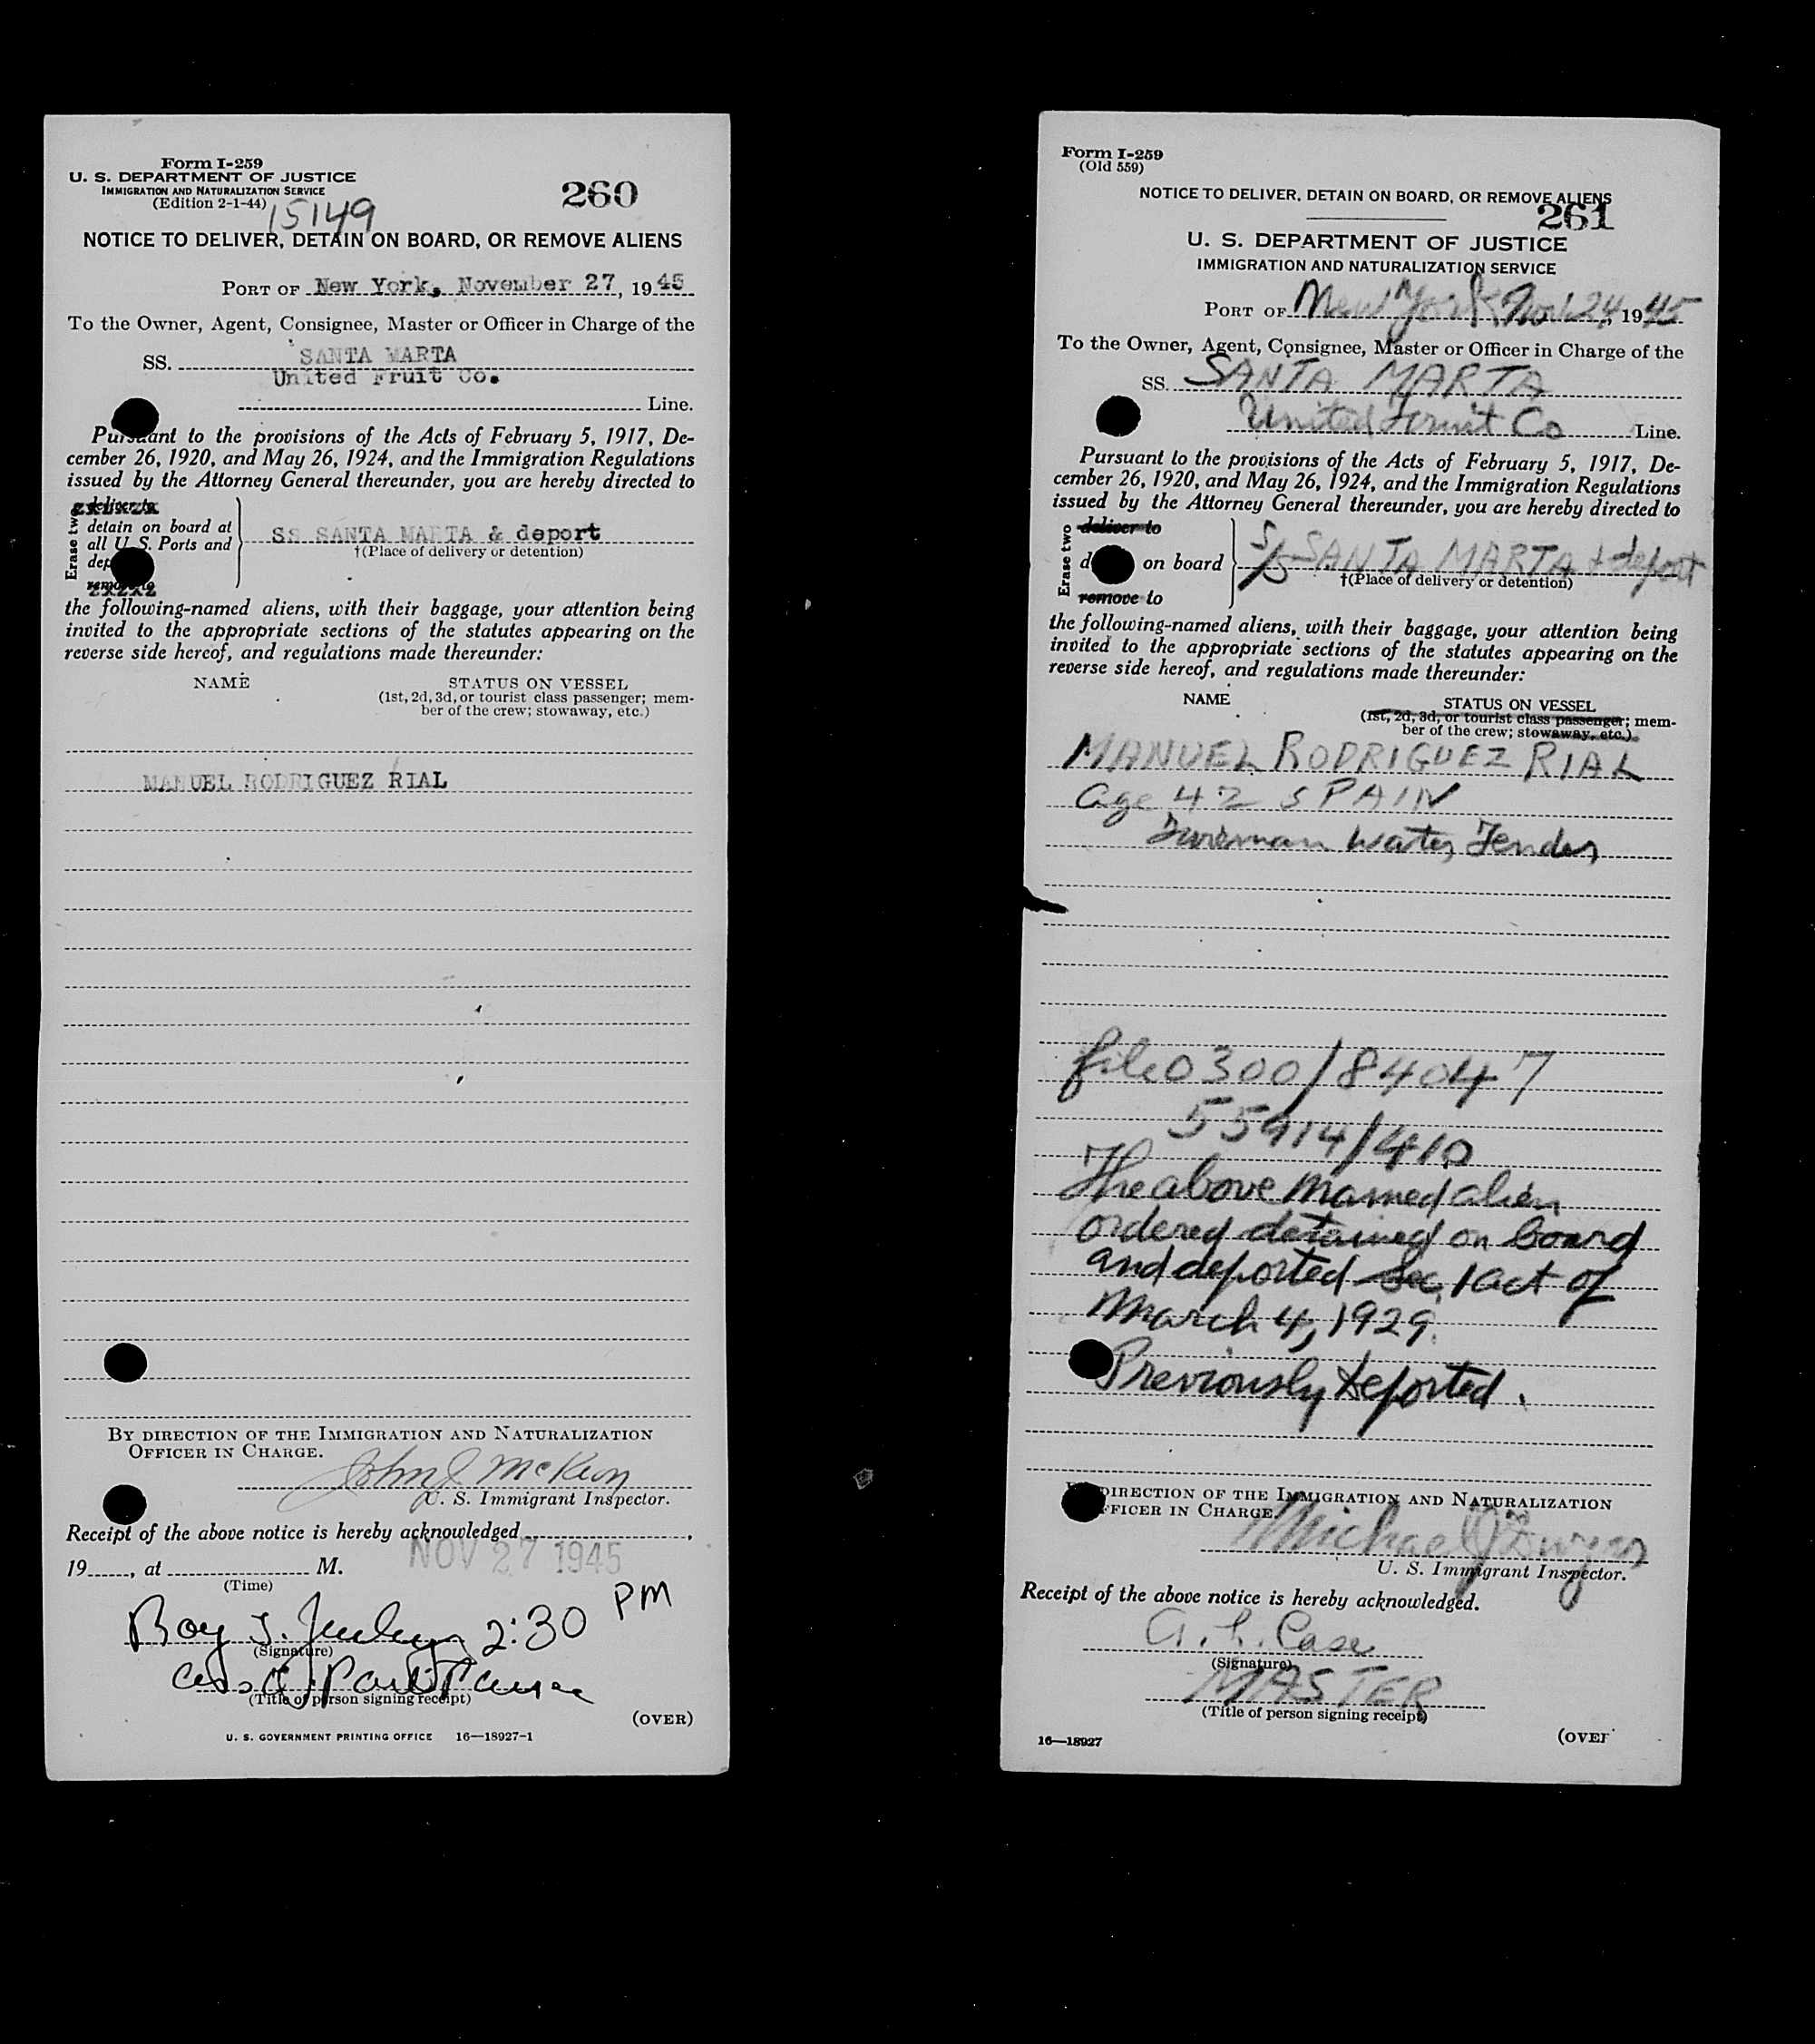 Form I-259
U. S. DEPARTMENT OF JUSTICE
IMMIGRATION AND NATURALIZATION SERVICE
(Edition 2-1-44)
15149
260
NOTICE TO DELIVER, DETAIN ON BOARD, OR REMOVE ALIENS
PORT OF New York, November 27, 1945
To the Owner, Agent, Consignee, Master or Officer in Charge of the
SS. SANTA MARTA
United Fruit Co.
Line.
Pursuant to the provisions of the Acts of February 5, 1917, De-
cember 26, 1920, and May 26, 1924, and the Immigration Regulations
issued by the Attorney General thereunder, you are hereby directed to
Erase two
deliver to
detain on board at
all U. S. Ports and
dep
remove to
SS SANTA MARTA & deport
†(Place of delivery or detention)
the following-named aliens, with their baggage, your attention being
invited to the appropriate sections of the statutes appearing on the
reverse side hereof, and regulations made thereunder:
NAME
STATUS ON VESSEL
(1st, 2d, 3d, or tourist class passenger; mem-
ber of the crew; stowaway, etc.)
MANUEL RODRIGUEZ RIAL
BY DIRECTION OF THE IMMIGRATION AND NATURALIZATION
OFFICER IN CHARGE.
John J McKeon
U. S. Immigrant Inspector.
Receipt of the above notice is hereby acknowledged
19 , at M.
NOV 27 1945
(Time)
Roy J. 2:30 PM
(Signature)
(Title of person signing receipt)
(OVER)
U. S. GOVERNMENT PRINTING OFFICE 16—18927-1
Form I-259
(Old 559)
NOTICE TO DELIVER, DETAIN ON BOARD, OR REMOVE ALIENS
261
U. S. DEPARTMENT OF JUSTICE
IMMIGRATION AND NATURALIZATION SERVICE
PORT OF New York, Nov 24, 1945
To the Owner, Agent, Consignee, Master or Officer in Charge of the
SS. SANTA MARTA
United Fruit Co Line.
Pursuant to the provisions of the Acts of February 5, 1917, De-
cember 26, 1920, and May 26, 1924, and the Immigration Regulations
issued by the Attorney General thereunder, you are hereby directed to
Erase two
deliver to
d on board
remove to
S/S SANTA MARTA & deport
†(Place of delivery or detention)
the following-named aliens, with their baggage, your attention being
invited to the appropriate sections of the statutes appearing on the
reverse side hereof, and regulations made thereunder:
NAME
STATUS ON VESSEL
(1st, 2d, 3d, or tourist class passenger; mem-
ber of the crew; stowaway, etc.)
MANUEL RODRIGUEZ RIAL
age 42 SPAIN
Fireman Water Tender
file 0300/84047
55914/410
The above named alien
ordered detained on board
and deported sec. 1 act of
March 4, 1929.
Previously deported.
DIRECTION OF THE IMMIGRATION AND NATURALIZATION
FFICER IN CHARGE.
Michael J Dwyer
U. S. Immigrant Inspector.
Receipt of the above notice is hereby acknowledged.
A. L. Case
(Signature)
MASTER
(Title of person signing receipt)
16—18927
(OVER